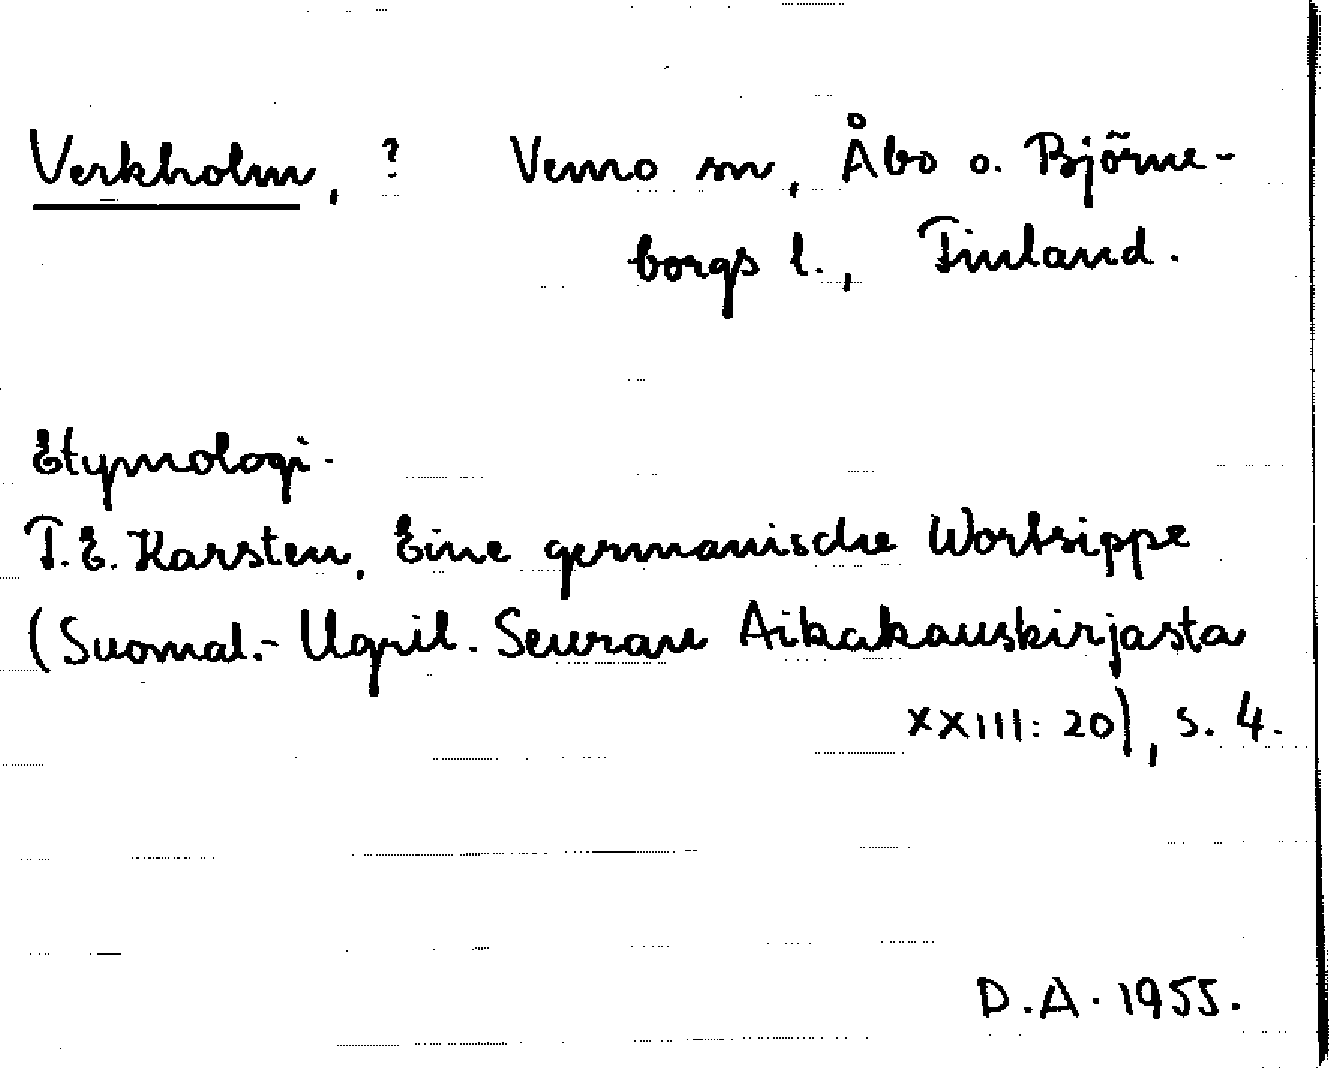 Verkholm, ? Vemo sn, Åbo o. Björne-
borgs l., Finland.
Etymologi.
T.E. Karsten, Eine germanische Wortsippe
(Suomal.- Ugril. Seuran Aikakauskirjasta
XXIII: 20), s. 4.
D.A. 1955.